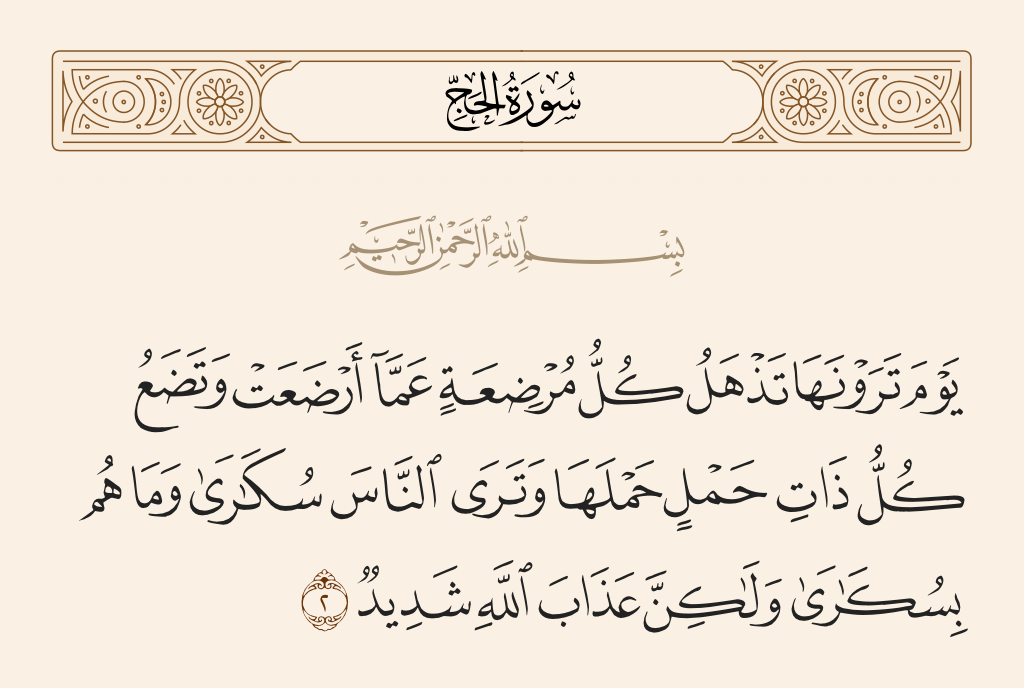 سُورَةُ الحَجِّ
بِسْمِ ٱللَّهِ ٱلرَّحْمَٰنِ ٱلرَّحِيمِ
يَوْمَ تَرَوْنَهَا تَذْهَلُ كُلُّ مُرْضِعَةٍ عَمَّآ أَرْضَعَتْ وَتَضَعُ
كُلُّ ذَاتِ حَمْلٍ حَمْلَهَا وَتَرَى ٱلنَّاسَ سُكَٰرَىٰ وَمَا هُم
بِسُكَٰرَىٰ وَلَٰكِنَّ عَذَابَ ٱللَّهِ شَدِيدٌ ٢